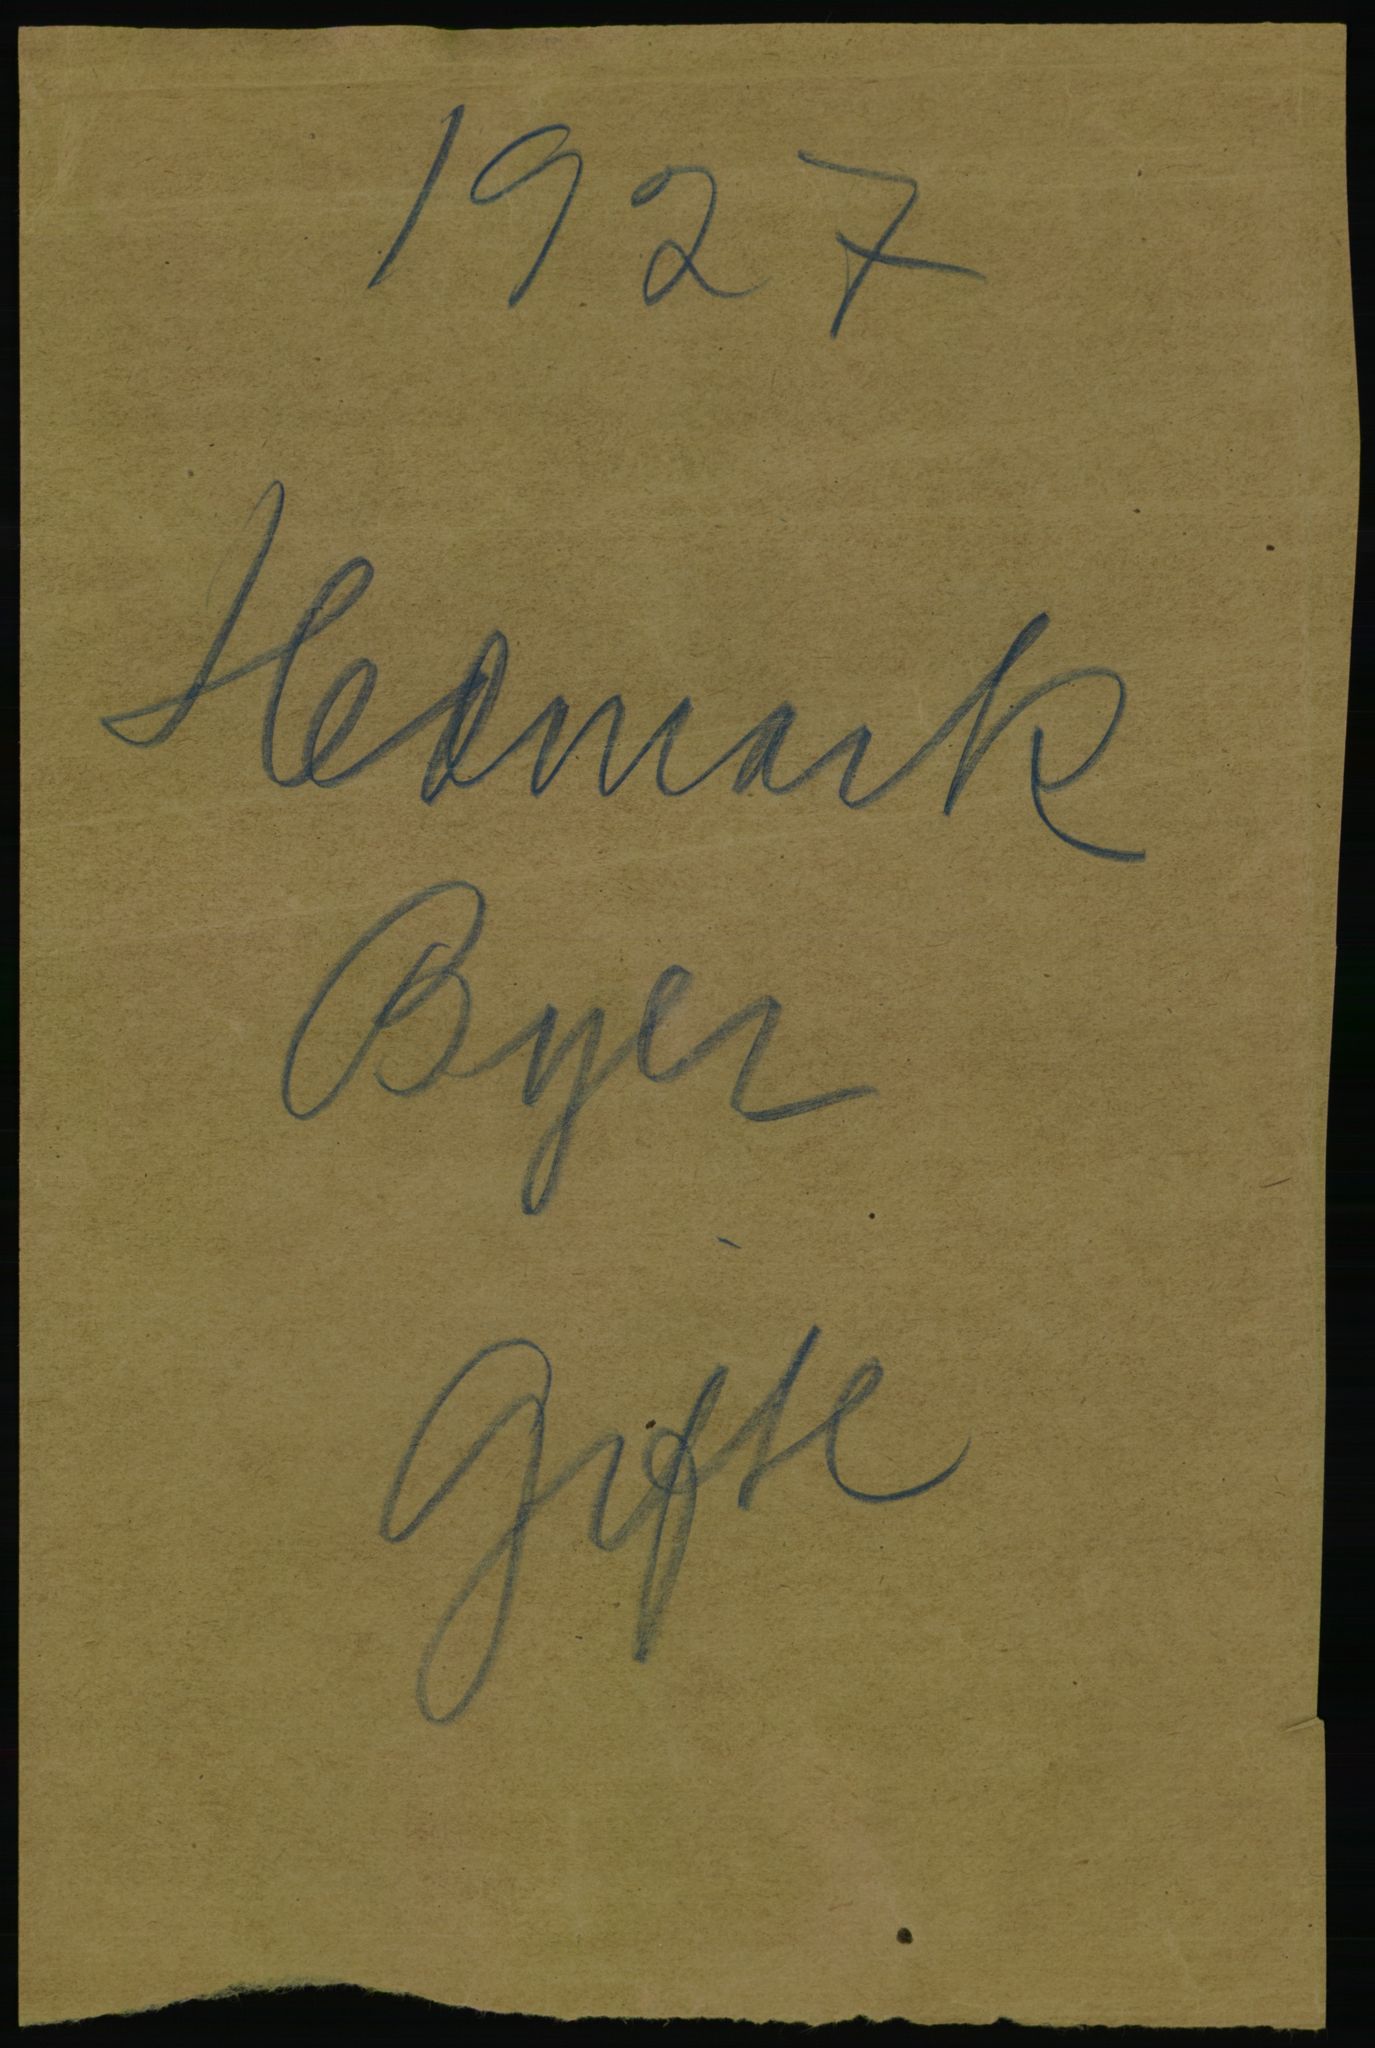 1927
Hedmark
Byer
Gifte